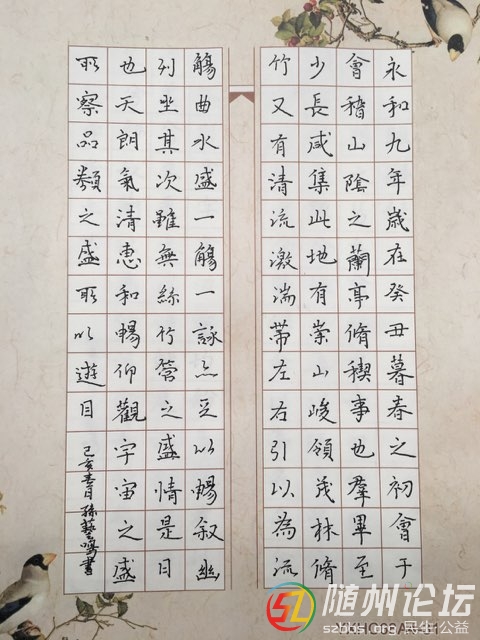 永和九年歲在癸丑暮春之初會于
會稽山陰之蘭亭脩稧事也羣畢至
少長咸集此地有崇山峻領茂林脩
竹又有清流激湍帶左右引以為流
觴曲水盛一觴一詠亦足以暢叙幽
列坐其次雖無絲竹管之盛情是日
也天朗氣清惠和暢仰觀宇宙之盛
所察品類之盛所以遊目
己亥春日孫藝鳴書
随州论坛
szbbs.org 民生公益